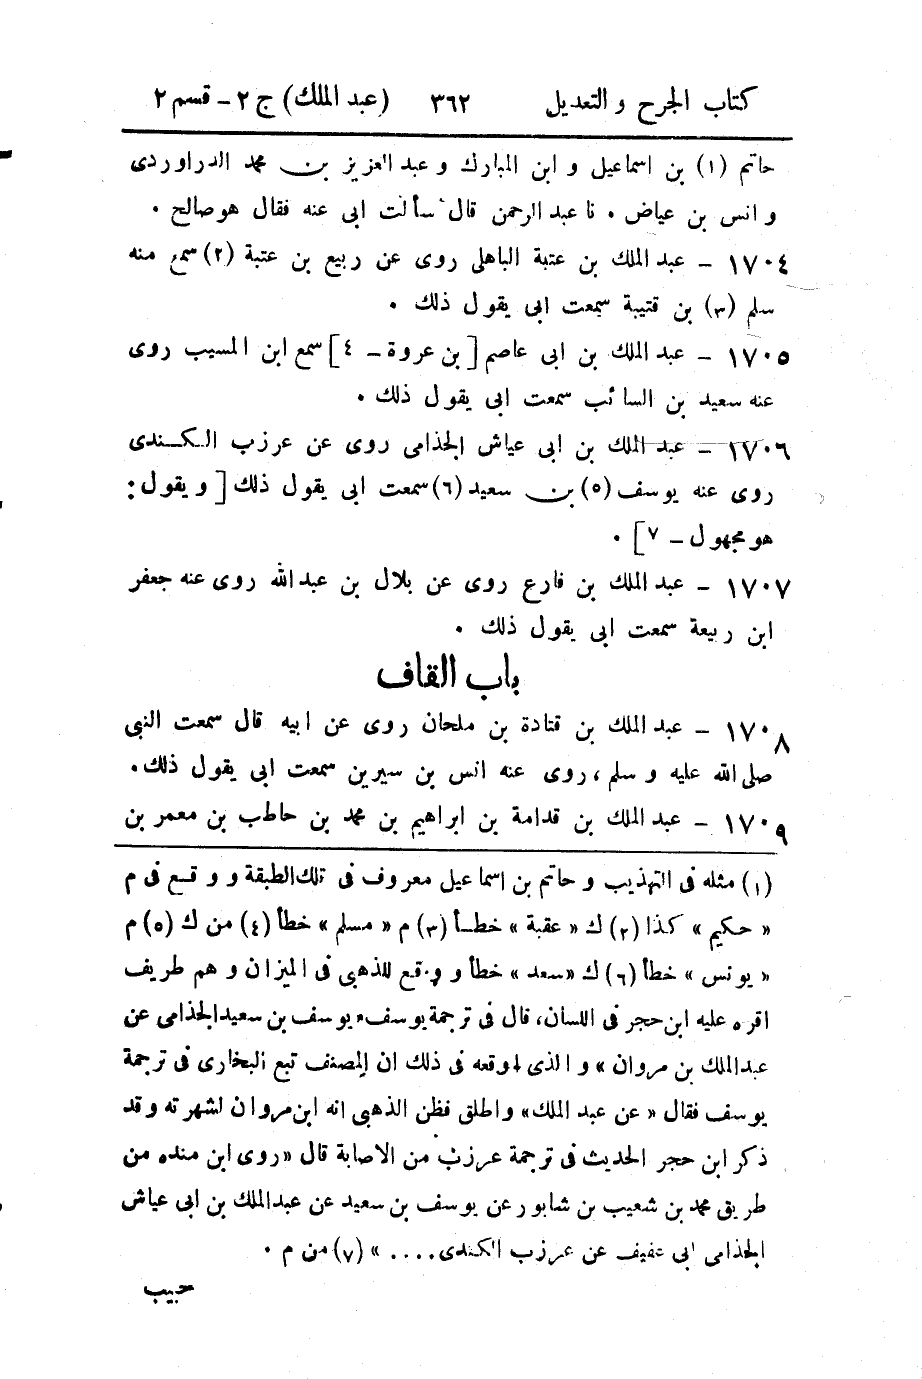 كتاب الجرح و التعديل ٣٦٢ (عبد الملك) ج ٢ – قسم ٢
حاتم (١) بن اسماعيل و ابن المبارك و عبد العزيز بن محمد الدراوردى
و انس بن عياض . نا عبد الرحمن قال سألت ابى عنه فقال هو صالح .
١٧٠٤ – عبد الملك بن عتبة الباهلى روى عن ربيع بن عتبة (٢) سمع منه
سلم (٣) بن قتيبة سمعت ابى يقول ذلك .
١٧٠٥ – عبد الملك بن ابى عاصم [ بن عروة – ٤ ] سمع ابن المسيب روى
عنه سعيد بن السائب سمعت ابى يقول ذلك .
١٧٠٦ – عبد الملك بن ابى عياش الجذامى روى عن عرزب الكندى
روى عنه يوسف (٥) بن سعيد (٦) سمعت ابى يقول ذلك [ و يقول :
هو مجهول – ٧ ] .
١٧٠٧ – عبد الملك بن فارع روى عن بلال بن عبد الله روى عنه جعفر
ابن ربيعة سمعت ابى يقول ذلك .
باب القاف
١٧٠٨ – عبد الملك بن قتادة بن ملحان روى عن ابيه قال سمعت النبى
صلى الله عليه و سلم ، روى عنه انس بن سيرين سمعت ابى يقول ذلك .
١٧٠٩ – عبد الملك بن قدامة بن ابراهيم بن محمد بن حاطب بن معمر بن
(١) مثله فى التهذيب و حاتم بن اسماعيل معروف فى تلك الطبقة و وقع فى م
« حكيم » كذا (٢) ك « عقبة » خطأ (٣) م « مسلم » خطأ (٤) من ك (٥) م
« يونس » خطأ (٦) ك « سعد » خطأ و وقع للذهبى فى الميزان و هم طريف
اقره عليه ابن حجر فى اللسان، قال فى ترجمة يوسف « يوسف بن سعيد الجذامى عن
عبد الملك بن مروان » و الذى اوقعه فى ذلك ان المصنف تبع البخارى فى ترجمة
يوسف فقال « عن عبد الملك » واطلق فظن الذهبى انه ابن مروان لشهرته وقد
ذكر ابن حجر الحديث فى ترجمة عرزب من الاصابة قال « روى ابن منده من
طريق محمد بن شعيب بن شابور عن يوسف بن سعيد عن عبد الملك بن ابى عياش
الجذامى ابى عفيف عن عرزب الكندى .... » (٧) من م .
حبيب